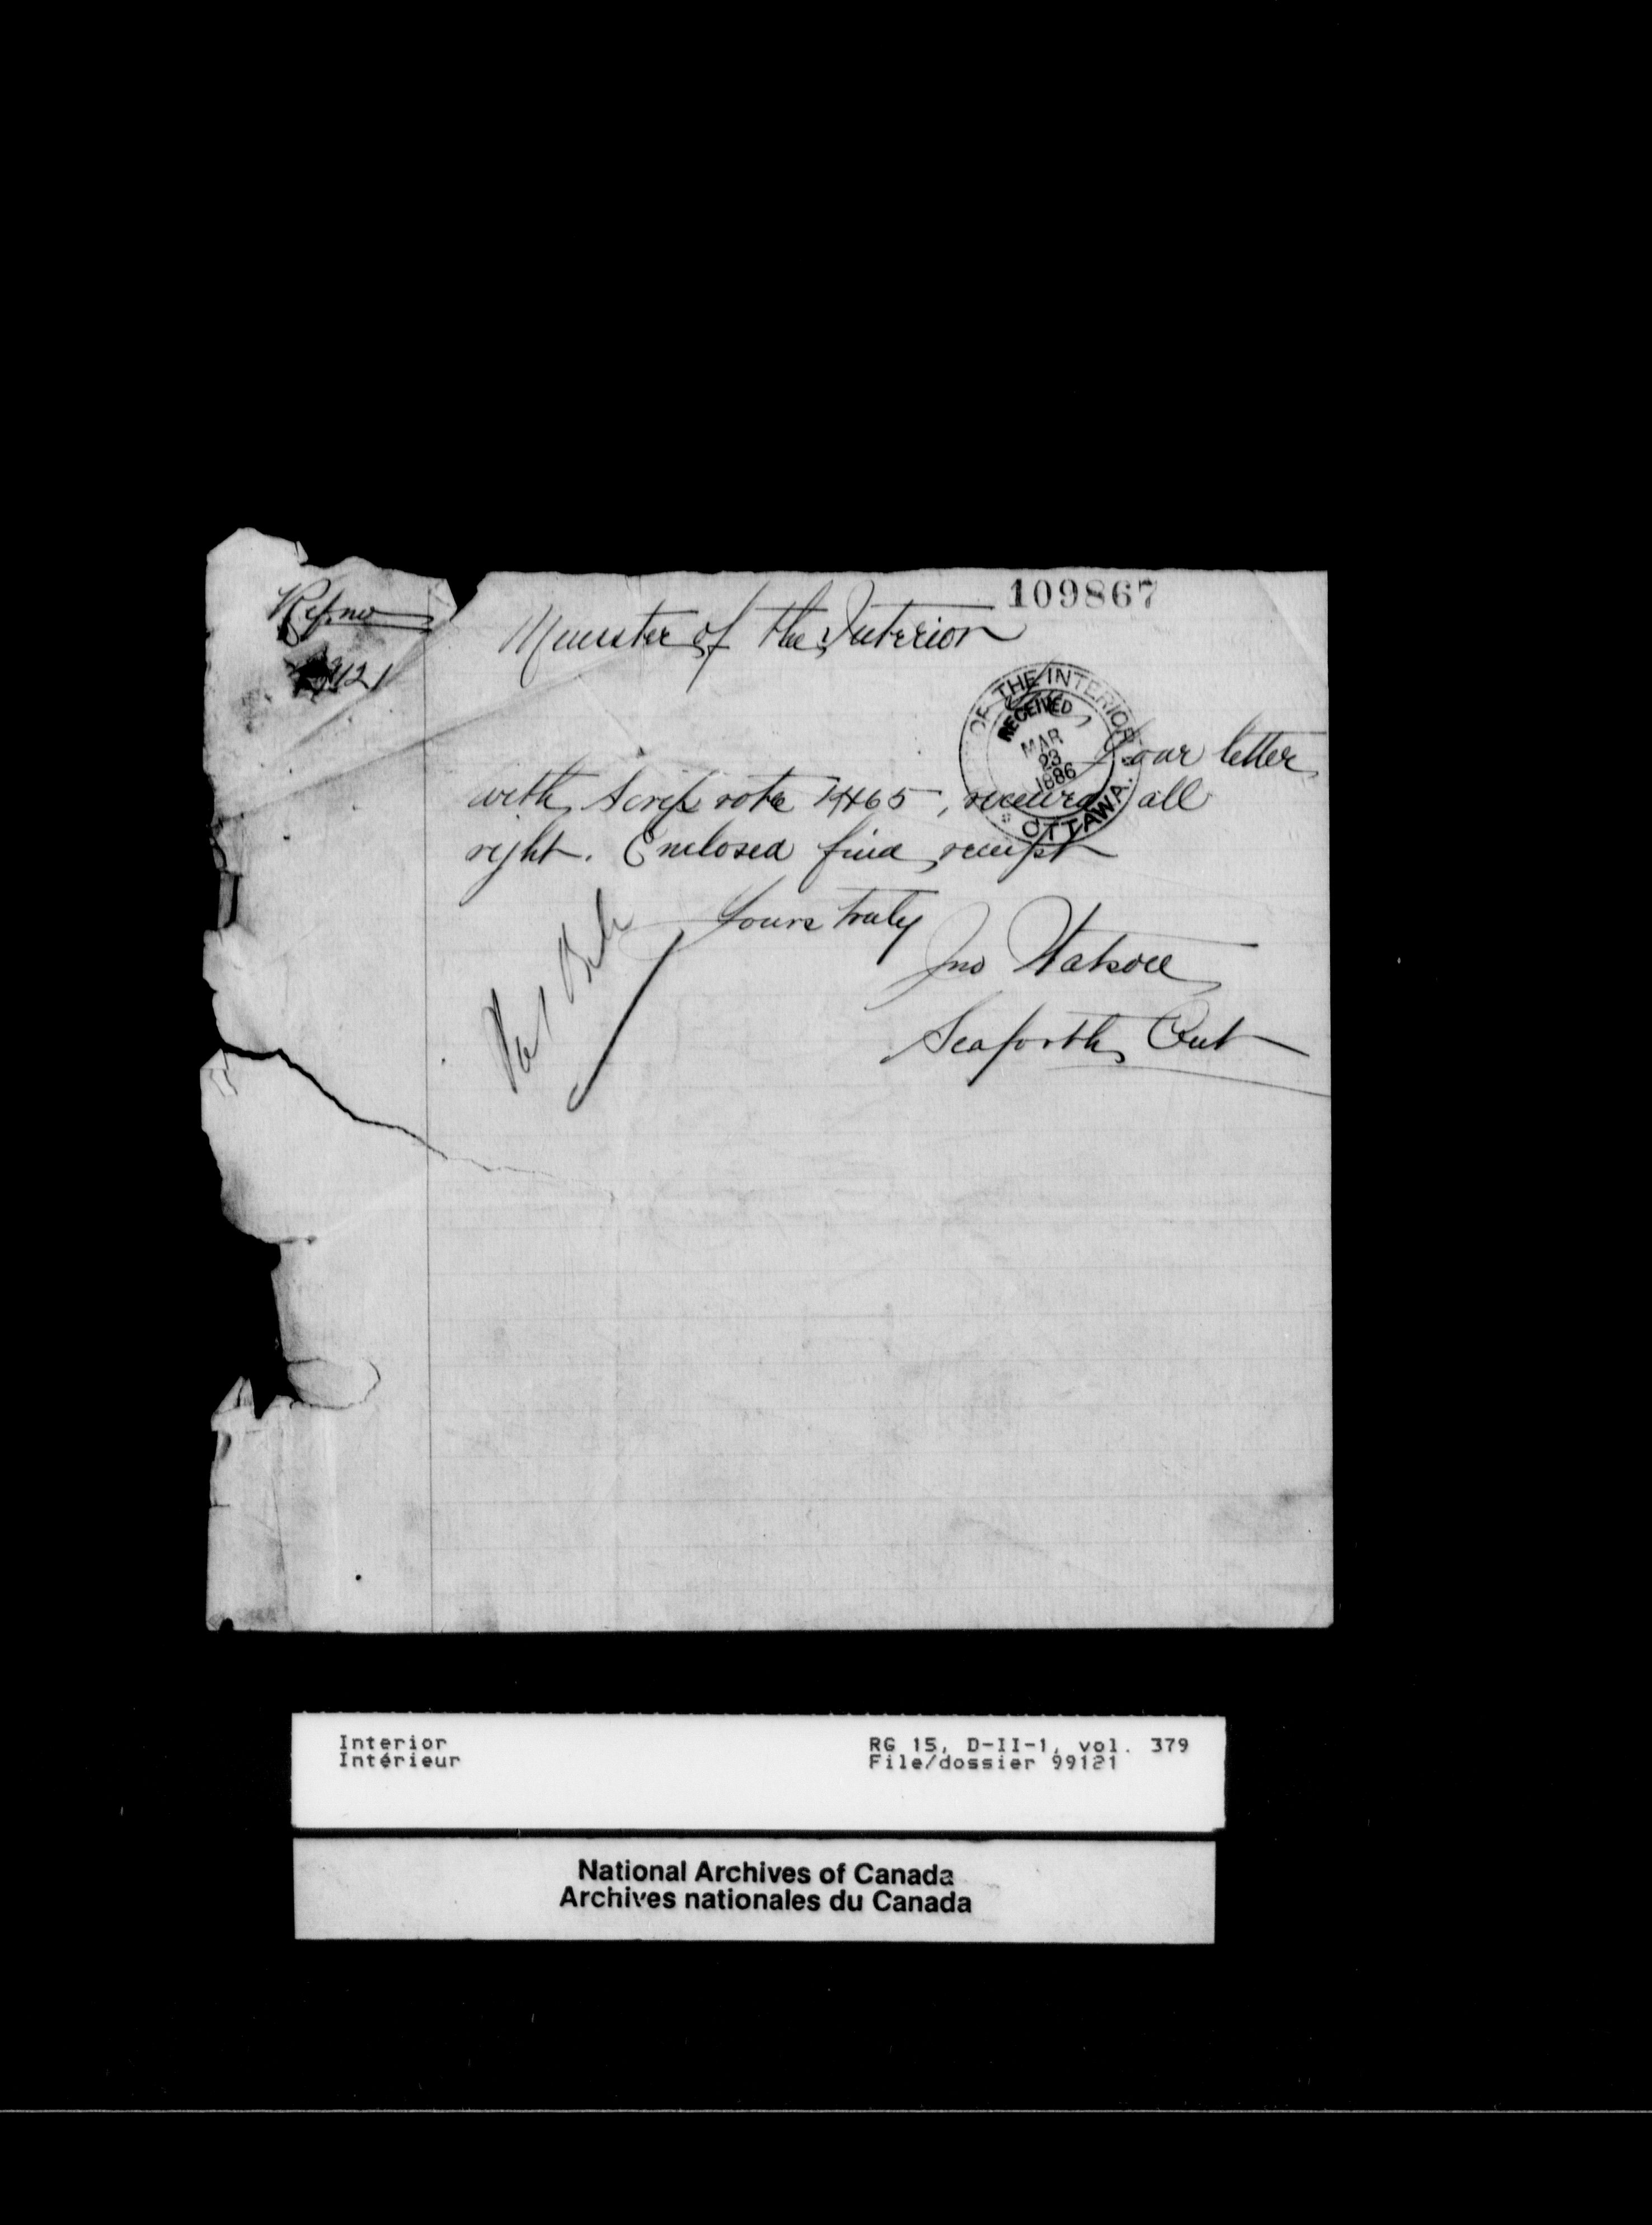 109867
Ref. no
99121
Minister of the Interior
OF THE INTERIOR
RECEIVED
MAR
23
1886
OTTAWA.
Sir,
Your letter
with Scrip note 4465, received all
right. Enclosed find receipt
Yours truly
Jno Watson
Seaforth Ont
Interior
Intérieur
RG 15, D-II-1, vol. 379
File/dossier 99121
National Archives of Canada
Archives nationales du Canada